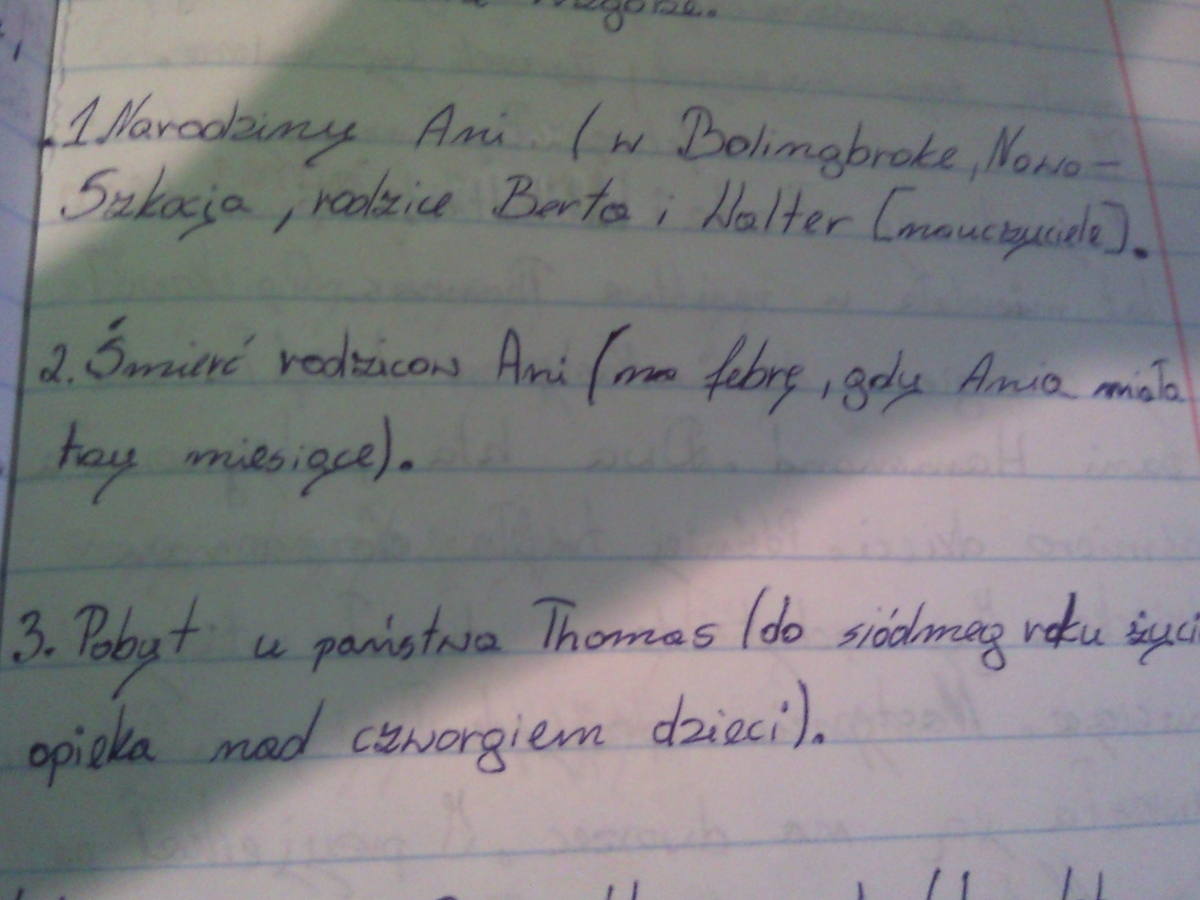 wzgórze.
.1 Narodziny Ani (w Bolingbroke, Nowo-
Szkocja, rodzice Berta i Walter [nauczyciele].
2. Śmierć rodziców Ani (na febrę, gdy Ania miała
trzy miesiące).
3. Pobyt u państwa Thomas (do siódmeg roku życi
opieka nad czworgiem dzieci).